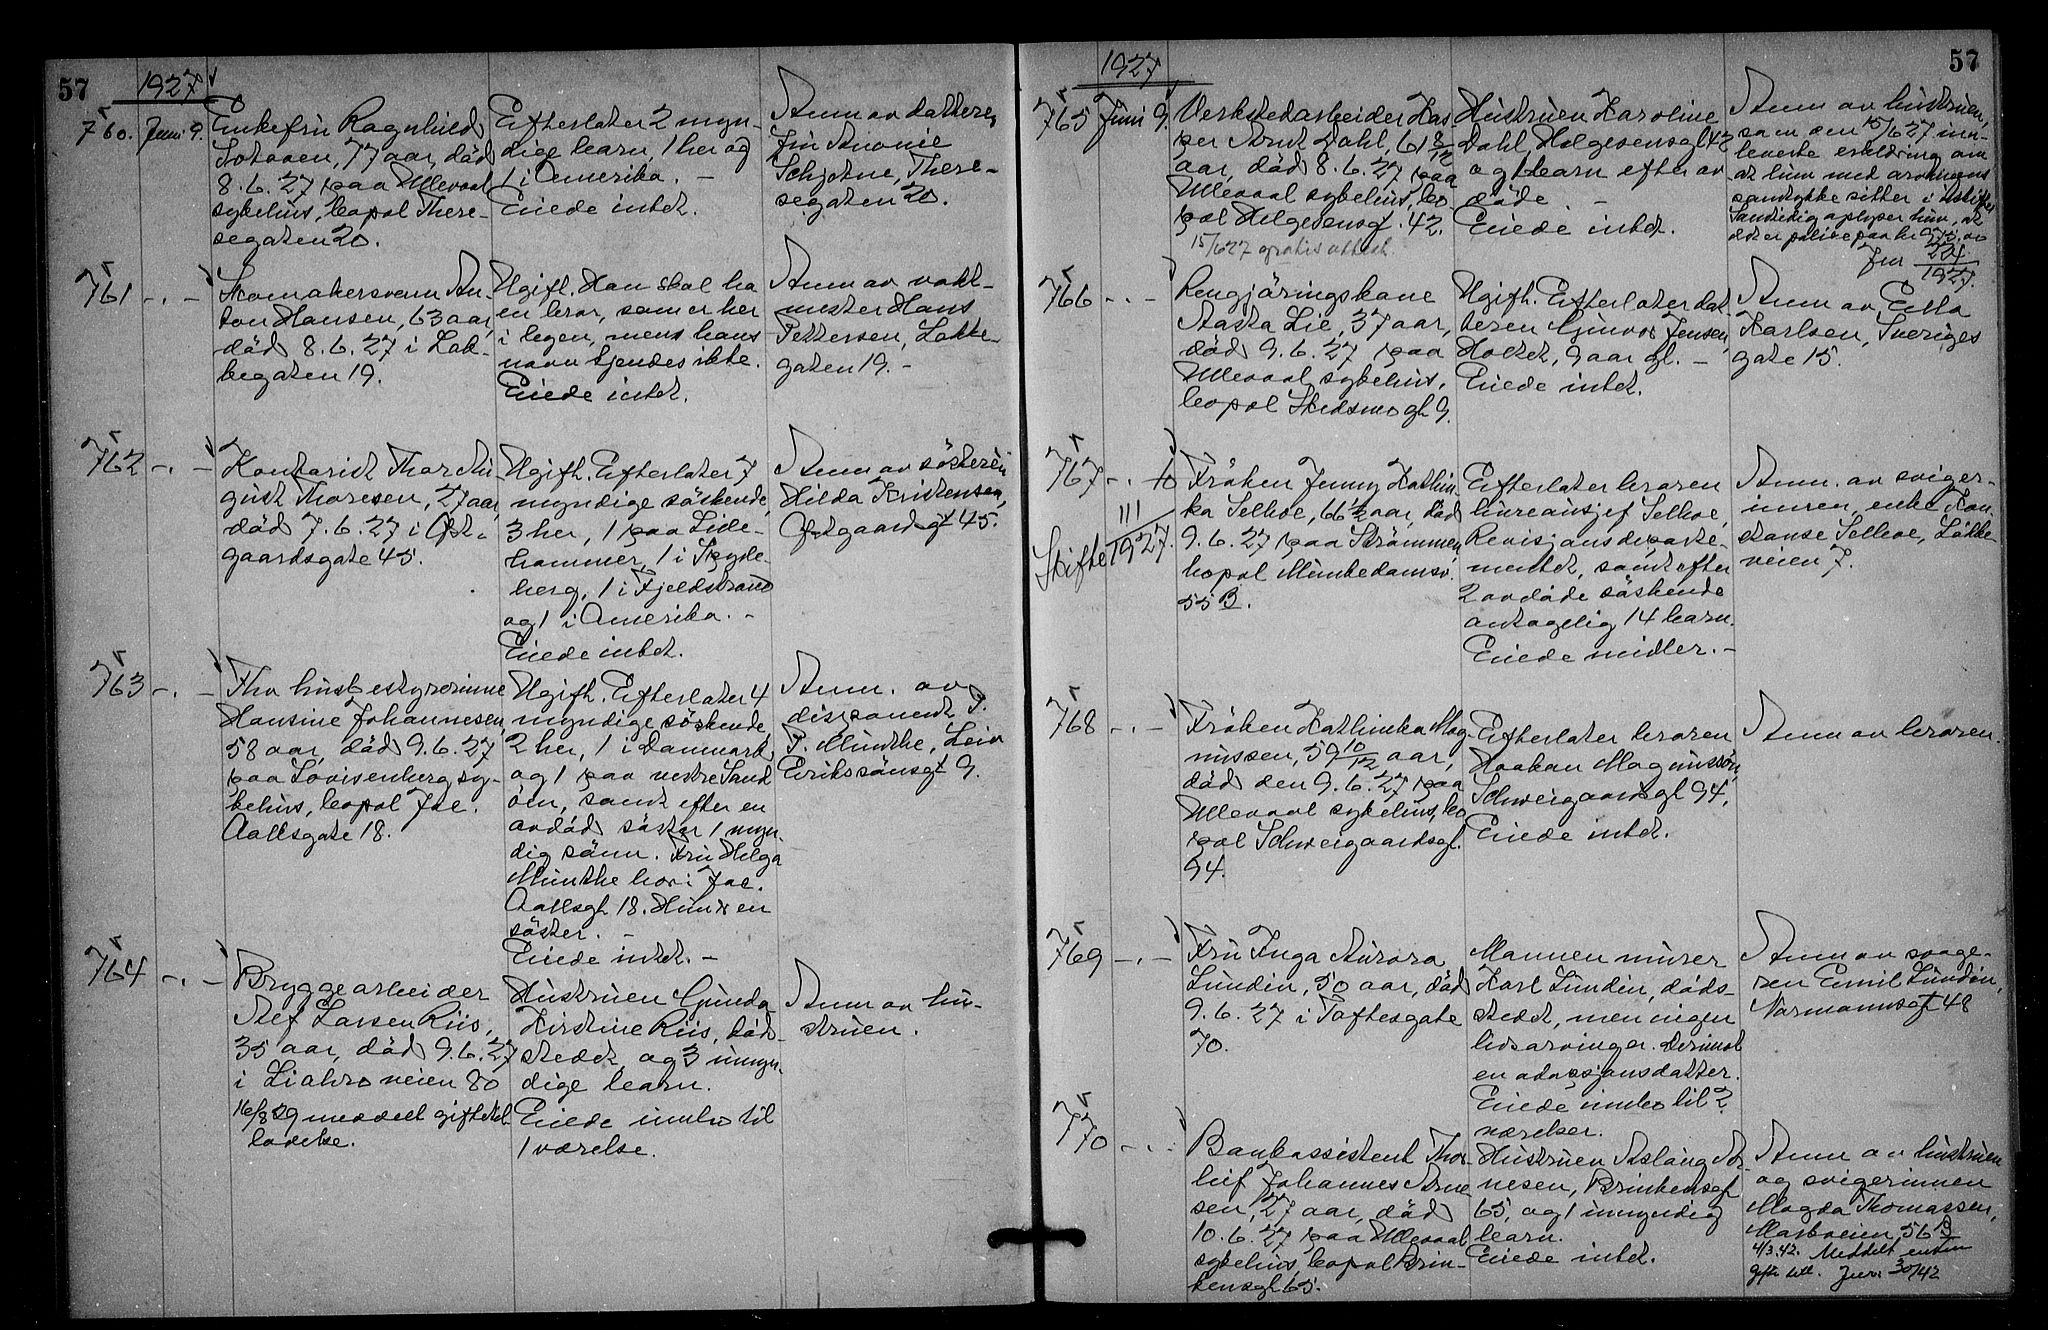 57
1927
760. Juni 9.
Enkefru Ragnhild
77 aar, død
8.6.27 paa Ullevaal
sykehus, bopæl There-
segaten 20.
Efterlater 2 myn-
dige barn, 1 her og
1 i Amerika. -
Eiede intet.
Anm av datteren
Fru
There-
segaten 20.
761 -.-
Skomakersvenn An-
ton Hansen, 63 aar,
død 8.6.27 i Lak-
kegaten 19.
Ugift. Han skal ha
en bror, som er her
i byen, mens hans
navn kjendes ikke.
Eiede intet.
Anm av vakt-
mester Hans
Pettersen, Lakke-
gaten 19. -
762 -.-
Kontorist Thor Au-
gust Thoresen, 27 aar,
død 7.6.27 i Øst-
gaardsgate 45.
Ugift. Efterlater 7
myndige søskende,
3 her, 1 paa Lille-
hammer, 1 i Spyde-
berg, 1 i Fjeldstrand
og 1 i Amerika. -
Eiede intet.
Anm av søsteren
Hilda Kristensen,
Østgaardsgt 45.
763 -.-
Fhv husbestyrerinne
Hansine Johannesen,
58 aar, død 9.6.27
paa Lovisenberg sy-
kehus, bopæl Jac.
Aallsgate 18.
Ugift. Efterlater 4
myndige søskende,
2 her, 1 i Danmark
og 1 paa vestre Sand
øen, samt efter en
avdød søster 1 myn-
dig sønn. Fru Helga
Munthe bor i Jac.
Aallsgt 18. Hun er en
søster. -
Eiede intet. -
Anm. av
disponent P.
P. Munthe, Leiv
Erikssønsgt 9.
764 -.-
Bryggearbeider
Alef Larsen Riis,
35 aar, død 9.6.27
i Liabroveien 80
16/8 29 meddelt giftetil-
ladelse.
Hustruen Gunda
Kirstine Riis, død-
stedet og 3 umyn-
dige barn.
Eiede innbo til
1 værelse.
Anm av hu-
struen.
57
1927
765 Juni 9.
Verkstedarbeider Kas-
per Arnt Dahl, 61 8/12
aar, død 8.6.27 paa
Ullevaal sykehus, bo-
pæl Helgesensgt. 42.
15/6 27 gratis attest
Hustruen Karoline
Dahl, Helgesensgt 42
og 1 barn efter av
døde. -
Eiede intet.
Anm av hustruen,
som den 15/6 27 inn-
leverte erklæring om
at hun med arvingens
samtykke sitter i uskiftet
Samtidig oplyser hun, at
det er polise paa kr
Jnr 224/1927.
766 -.-
Rengjøringskone
Aasta Lie, 37 aar,
død 9.6.27 paa
Ullevaal sykehus,
bopæl Skedsmogt 9.
Ugift. Efterlater dat-
teren Gunvor Jensen,
Holtet, 9 aar gl. -
Eiede intet.
Anm av Ella
Karlsen, Sveriges
gate 15.
767 -.- 10
Skifte 111/1927.
Frøken Jenny Kathin-
ka Selboe, 66 1/2 aar, død
9.6.27 paa Strømmen,
bopæl Munkedamsv.
55 B.
Efterlater broren
bureausjef Selboe,
Revisjonsdeparte-
mentet, samt efter
2 avdøde søskende
antagelig 14 barn.
Eiede midler. -
Anm. av sviger-
innen, enke Kon-
stanse Selboe, Løkke-
veien 7.
768 -.-
Frøken Kathinka Mag-
nussen, 59 10/12 aar,
død den 9.6.27 paa
Ullevaal sykehus, bo
pæl Schweigaardsgt.
94.
Efterlater broren
Haakon Magnussen,
Schweigaardsgt 94,
Eiede intet.
Anm av broren.
769 -.-
Fru Inga Aurora
Lundin, 50 aar, død
9.6.27 i Toftesgate
70.
Mannen murer
Karl Lundin, døds-
stedet, men ingen
livsarvinger. Derimot
en adopsjonsdatter.
Eiede innbo til 2
værelser.
Anm av svoge-
ren Emil Lundin,
Normannsgt 48
770 -.-
Bankassistent Thor-
leif Johannes Arne
sen, 27 aar, død
10.6.27 paa Ullevaal
sykehus, bopæl Brin-
kensgt 65.
Hustruen Aslaug Ar-
nesen, Brinkensgt
65, og 1 umyndig
barn.
Eiede intet.
Anm av hustruen
og svigerinnen
Magda Thomassen,
Maribоveien 56 B
4/3.42. Meddelt enken
gifte att. Jnr. 30/42